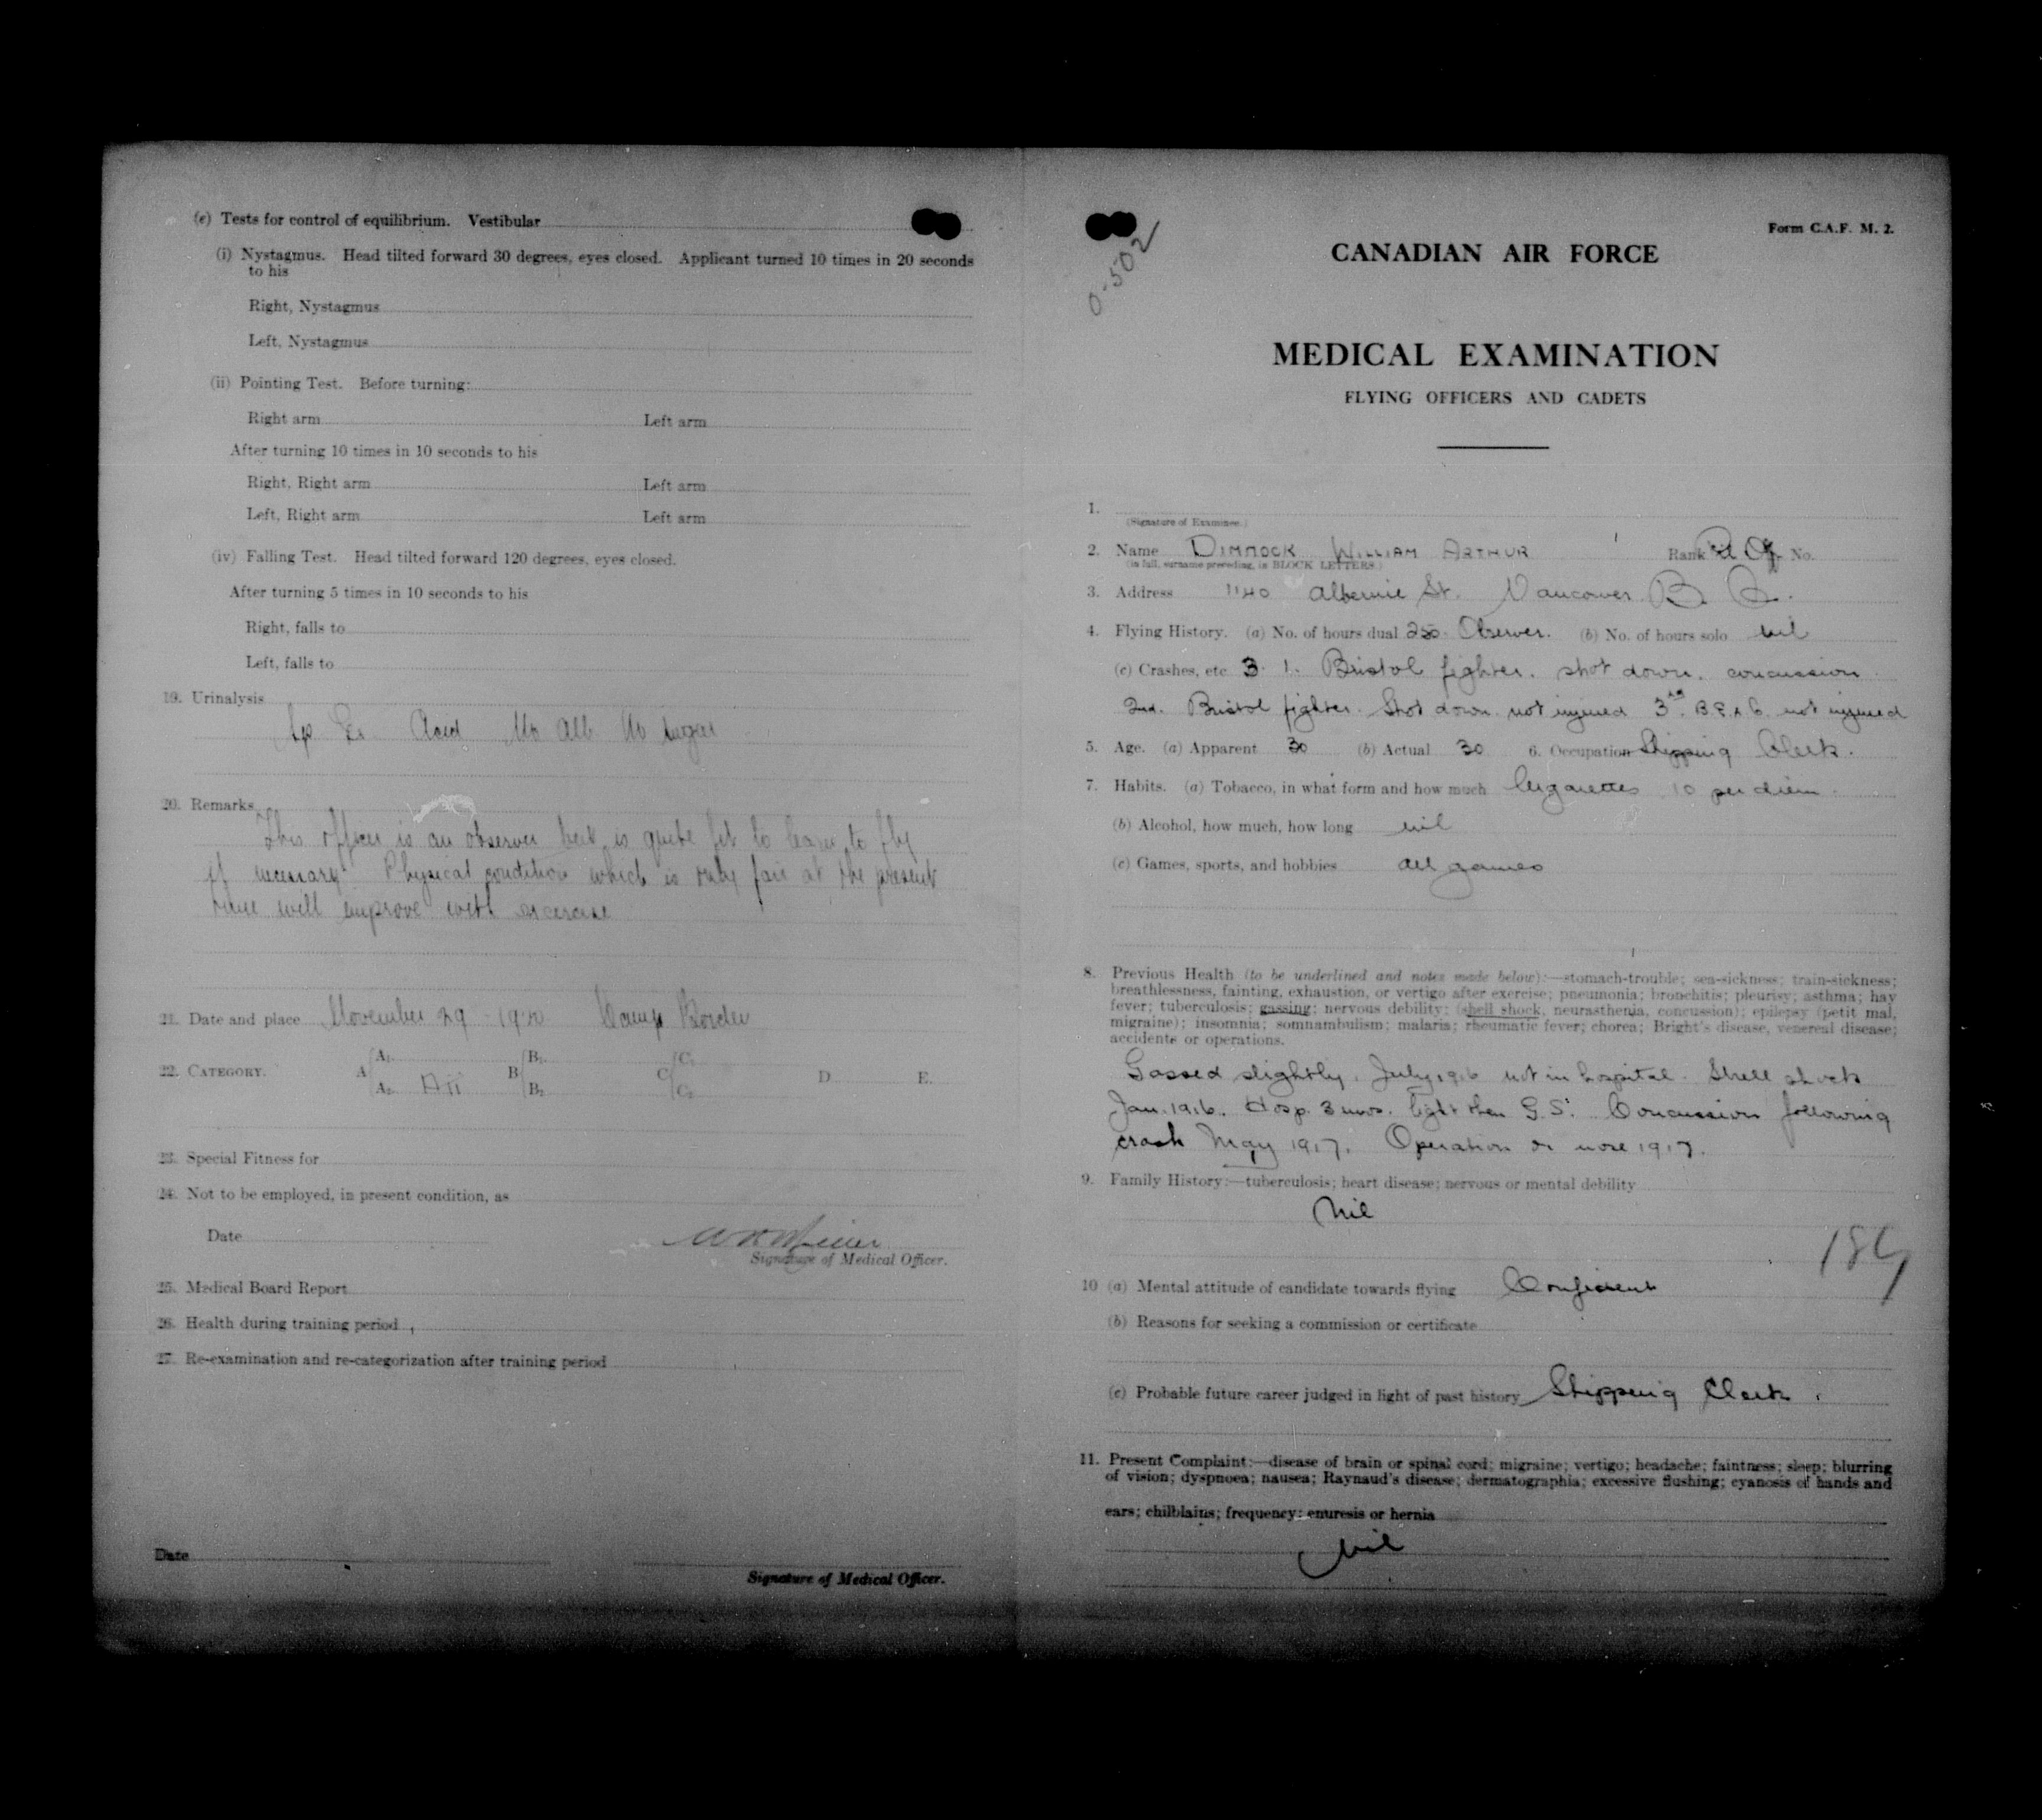 (e) Tests for control of equilibrium. Vestibular
(i) Nystagmus. Head tilted forward 30 degrees, eyes closed. Applicant turned 10 times in 20 seconds
to his
Right, Nystagmus
Left, Nystagmus
(ii) Pointing Test. Before turning:
Right arm Left arm
After turning 10 times in 10 seconds to his
Right, Right arm Left arm
Left, Right arm Left arm
(iv) Falling Test. Head tilted forward 120 degrees, eyes closed.
After turning 5 times in 10 seconds to his
Right, falls to
Left, falls to
19. Urinalysis
Sp Gr. Acid No Alb No Sugar
20. Remarks
This officer is an observer but is quite fit to learn to fly
if necessary. Physical condition which is only fair at the present
time will improve with exercise
21. Date and place November 29 1920 Camp Borden
22. CATEGORY. A A1 A2 AII B B1 B2 C C1 C2 D E.
23. Special Fitness for
24. Not to be employed, in present condition, as
Date
Signature of Medical Officer.
25. Medical Board Report
26. Health during training period
27. Re-examination and re-categorization after training period
Date
Signature of Medical Officer.
0-502
Form C.A.F. M. 2.
CANADIAN AIR FORCE
MEDICAL EXAMINATION
FLYING OFFICERS AND CADETS
1.
(Signature of Examinee.)
2. Name DIMMOCK WILLIAM ARTHUR Rank Off No.
(in full, surname preceding, in BLOCK LETTERS.)
3. Address 1140 Albernie St. Vancouver B. C.
4. Flying History. (a) No. of hours dual 250 Observer. (b) No. of hours solo nil
(c) Crashes, etc 3. 1. Bristol fighter. shot down. concussion
2nd. Bristol fighter. Shot down. not injured 3rd. not injured
5. Age. (a) Apparent 30 (b) Actual 30 6. Occupation Shipping Clerk.
7. Habits. (a) Tobacco, in what form and how much Cigarettes 10 per diem.
(b) Alcohol, how much, how long nil
(c) Games, sports, and hobbies all games
8. Previous Health (to be underlined and notes made below):—stomach-trouble; sea-sickness; train-sickness;
breathlessness, fainting, exhaustion, or vertigo after exercise; pneumonia; bronchitis; pleurisy; asthma; hay
fever; tuberculosis; gassing; nervous debility; (shell shock, neurasthenia, concussion); epilepsy (petit mal,
migraine); insomnia; somnambulism; malaria; rheumatic fever; chorea; Bright's disease, venereal disease;
accidents or operations.
Gassed slightly. July 1916 not in hospital. Shell shock
Jan. 1916. Hosp. 3 mos. light then G.S. Concussion following
crash May 1917. Operation on nose 1917.
9. Family History:—tuberculosis; heart disease; nervous or mental debility
Nil
10 (a) Mental attitude of candidate towards flying Confident
(b) Reasons for seeking a commission or certificate
(c) Probable future career judged in light of past history Shipping Clerk.
11. Present Complaint:—disease of brain or spinal cord; migraine; vertigo; headache; faintness; sleep; blurring
of vision; dyspnoea; nausea; Raynaud's disease; dermatographia; excessive flushing; cyanosis of hands and
ears; chilblains; frequency; enuresis or hernia
Nil